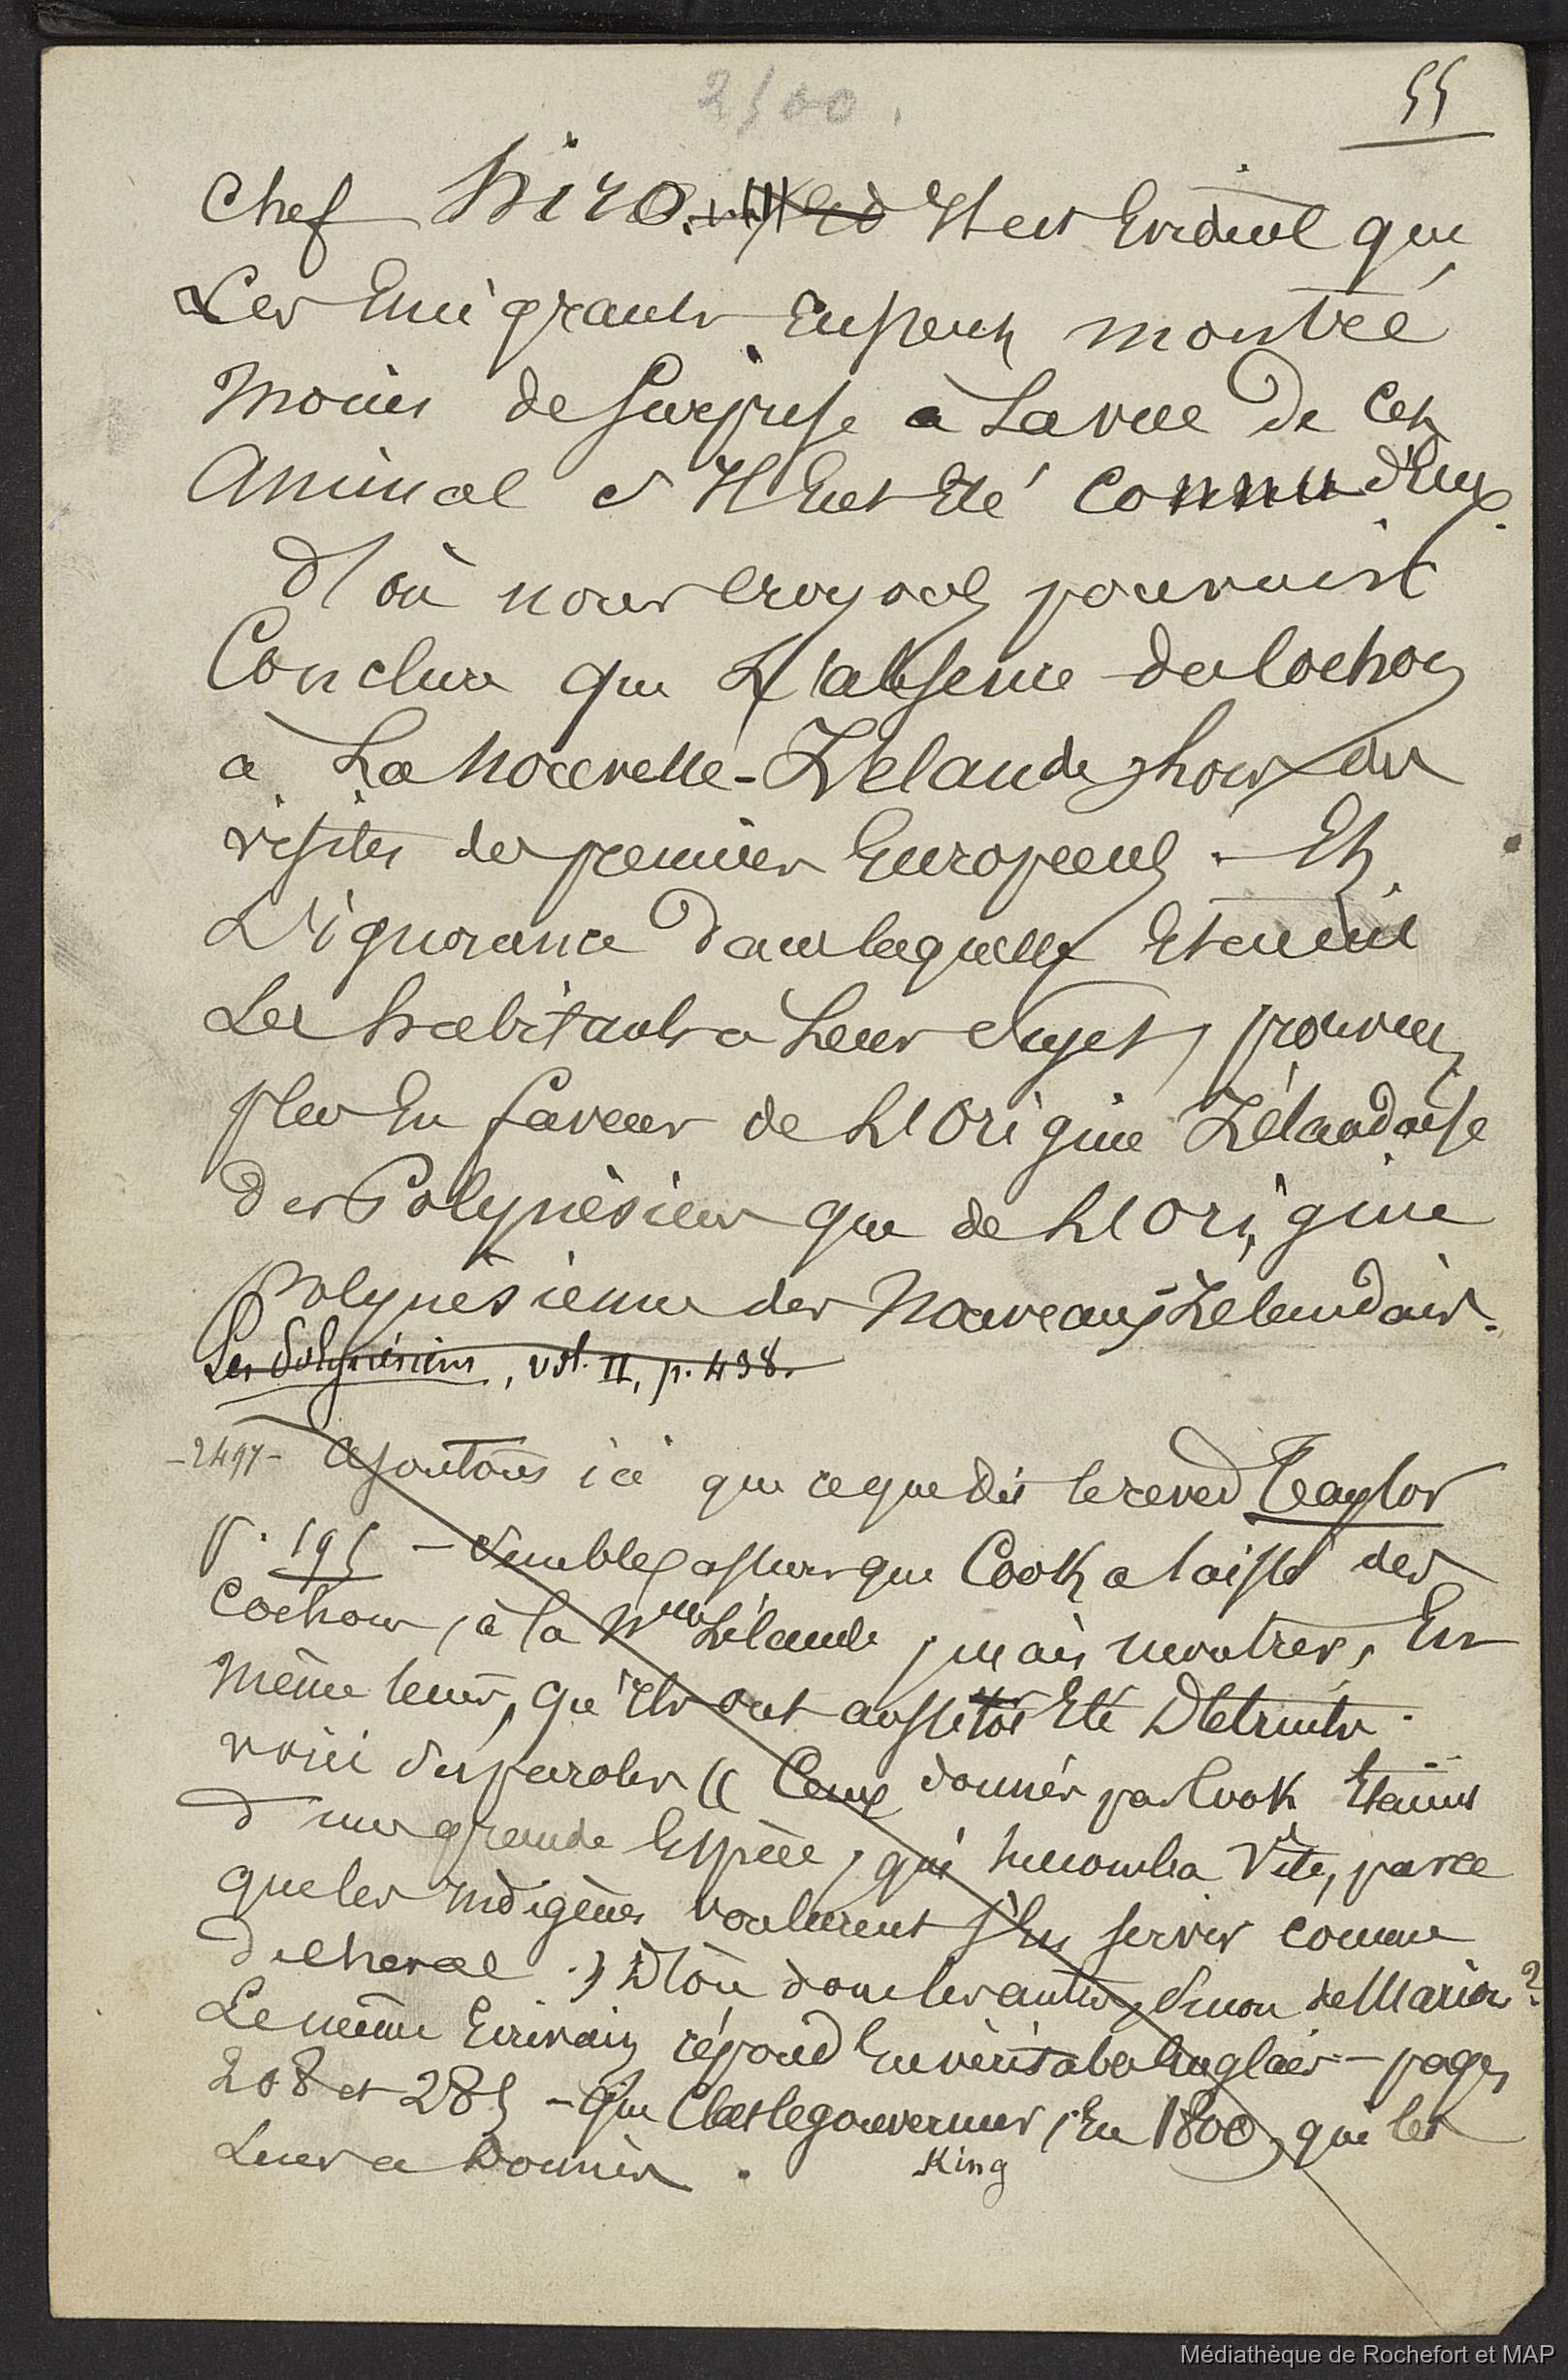 2500.
55
Chef Hiro. Il est Evident que
Les Emigrants Eussent montré
moins de surprise à La vue de Cet
Animal s'Il Eut Eté connu d'Eux.
d'où nous croyons pouvoir
Conclure que L'absence de cochons
à La Nouvelle-Zélande, lors des
visites des premiers Européens. Et
L'ignorance dans laquelle Etaient
Les habitants à Leur sujet, prouvent
plus En faveur de L'Origine Zélandaise
des Polynésiens que de L'Origine
Polynésienne des Nouveaux-Zélandais.
Les Polynésiens, vol. II, p. 438.
-2497- Ajoutons ici que ce que dit le reved Taylor
P. 195 - semble assurer que Cook a laissé des
Cochons, à la Nlle Zélande, mais montrer, En
même tems, qu'Ils ont aussitôt Eté Détruits.
voici ses paroles « Ceux donnés par Cook Etaient
d'une grande Espèce, qui succomba Vite, parce
que les indigènes voulurent s'en servir comme
de cheval. » D'où donc les autres, sinon de Marion?
Le même Ecrivain répond En véritable Anglais - pages
208 et 285 - que C'est le gouverneur, En 1800, qui les
King
Leur a Donnés.
Médiathèque de Rochefort et MAP